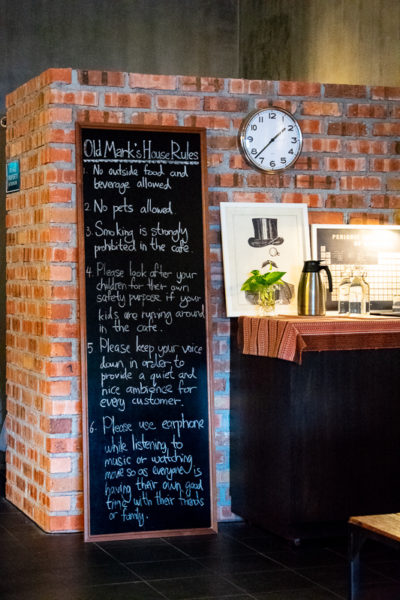 Old Mark's House Rules
1. No outside food and
beverage allowed
2. No pets allowed.
3. Smoking is strongly
prohibited in the cafe.
4. Please look after your
children for their own
safety purpose if your
kids are running around
in the cafe.
5. Please keep your voice
down, in order to
provide a quiet and
nice ambience for
every customer.
6. Please use earphone
while listening to
music or watching
movie so as everyone is
having their own good
time with their friends
or family.
12
1
2
3
4
5
6
7
8
9
10
11